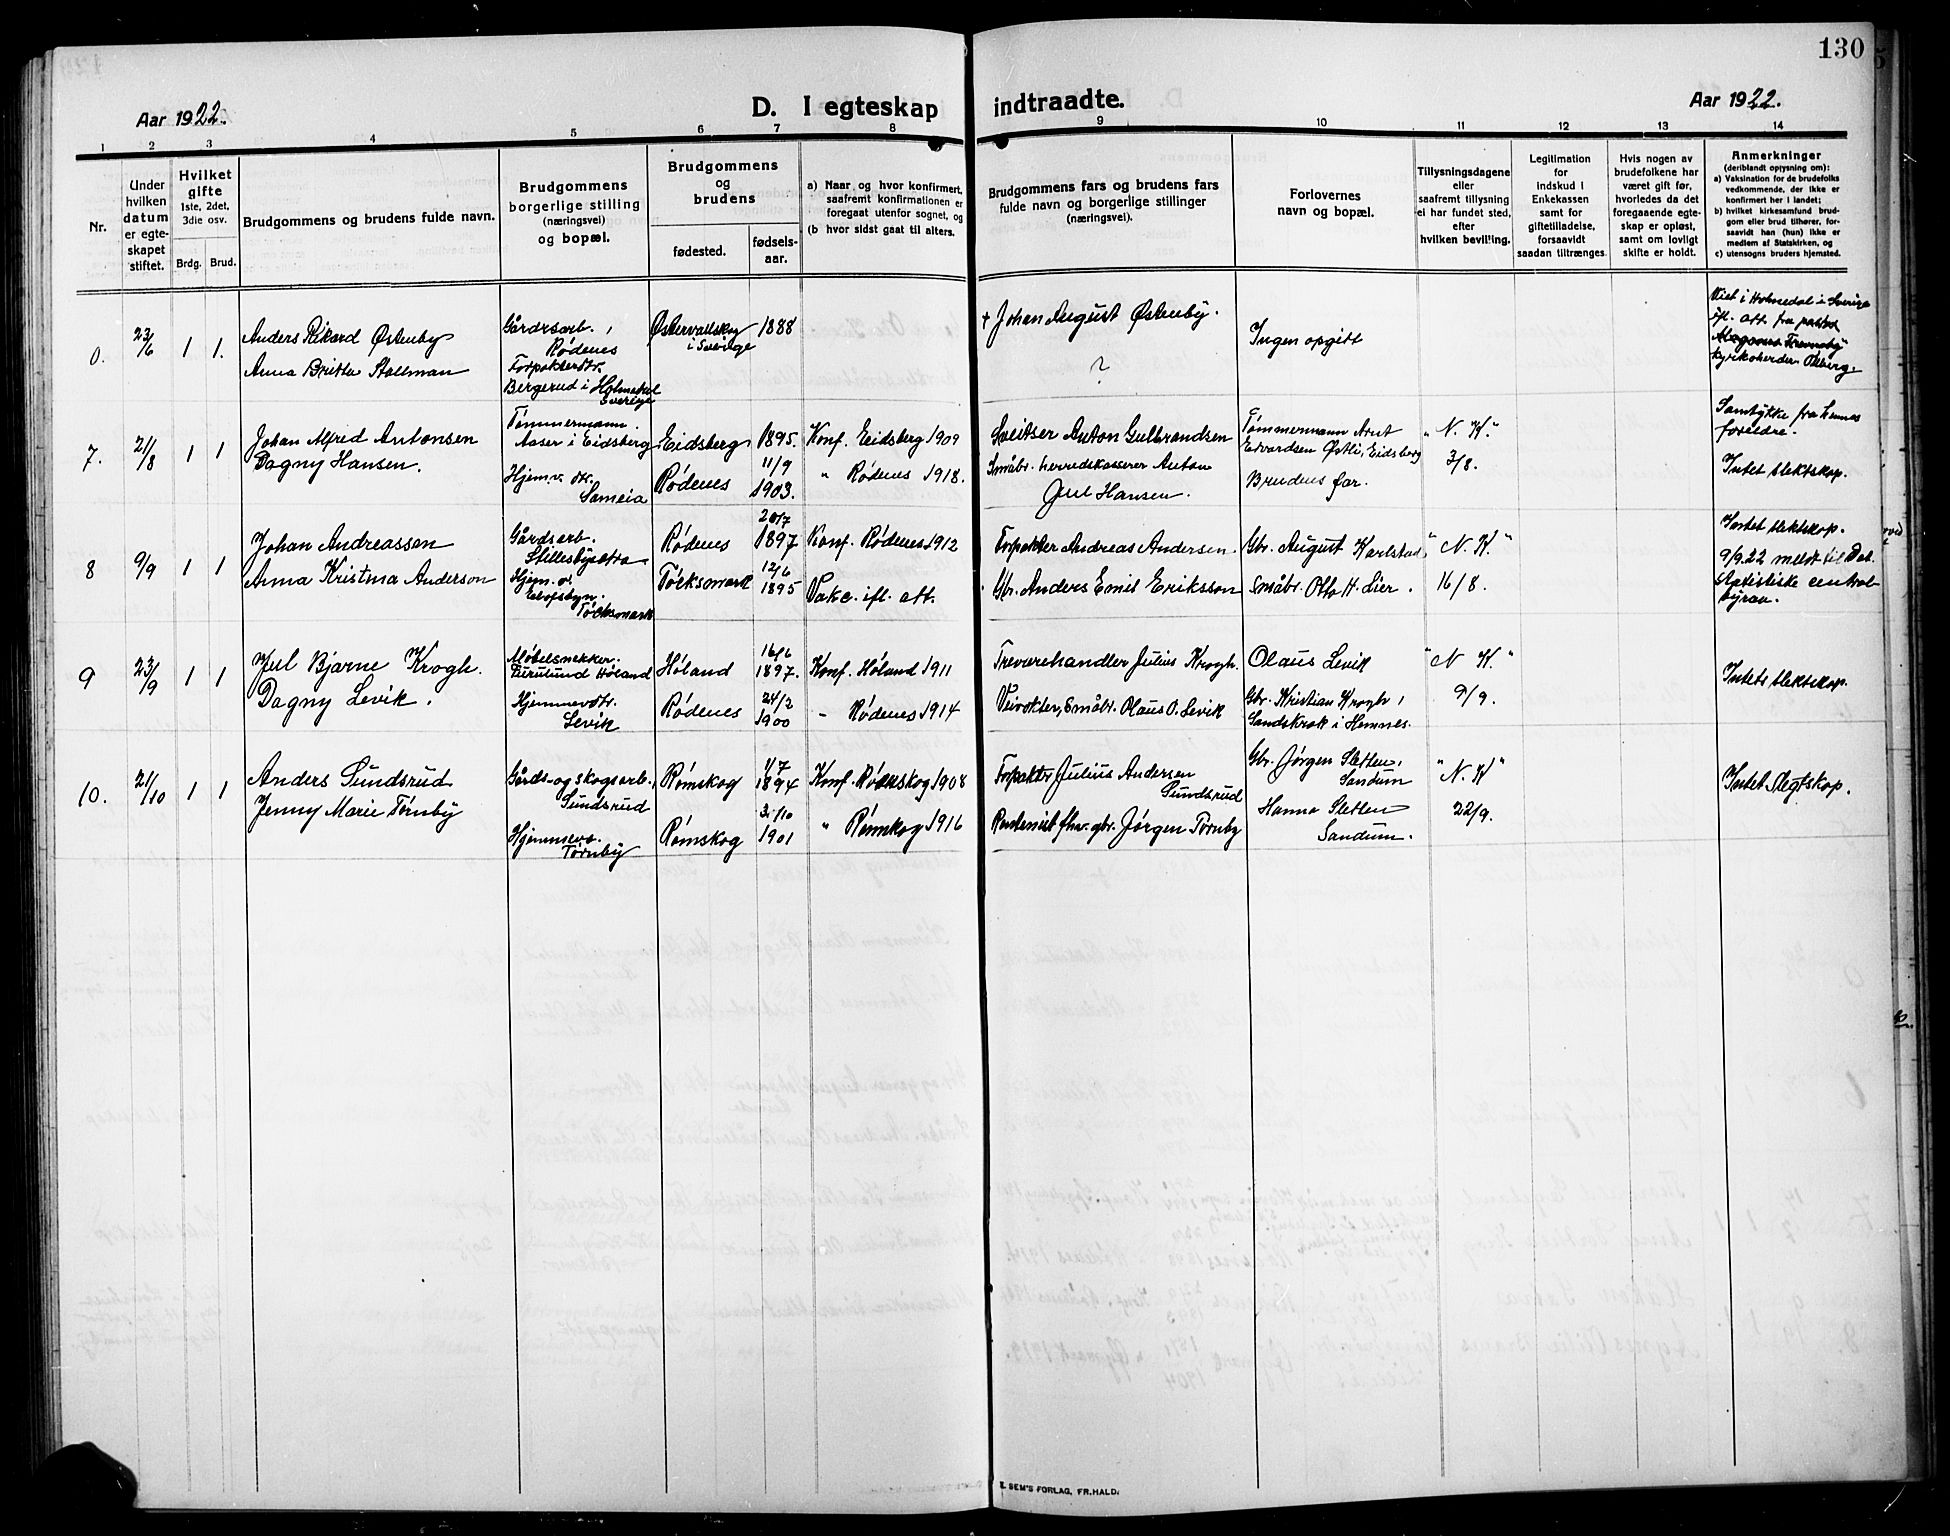 130
Aar 1922.
D. I egteskap indtraadte.
Aar 1922.
1 2 3 4 5 6 7 8 9 10 11 12 13 14
Nr.
Under hvilken datum er egte-skapet stiftet.
Hvilket gifte
1ste, 2det, 3die osv.
Brdg. Brud.
Brudgommens og brudens fulde navn.
Brudgommens borgerlige stilling (næringsvei) og bopæl.
Brudgommens og brudens
fødested.
fødsels-aar.
a) Naar og hvor konfirmert, saafremt konfirmationen er foregaat utenfor sognet, og
(b hvor sidst gaat til alters.
Brudgommens fars og brudens fars fulde navn og borgerlige stillinger (næringsvei).
Forlovernes navn og bopæl.
Tillysningsdagene eller saafremt tillysning ei har fundet sted, efter hvilken bevilling.
Legitimation for indskud i Enkekassen samt for giftetilladelse, forsaavidt saadan tiltrænges.
Hvis nogen av brudefolkene har været gift før, hvorledes da det foregaaende egte-skap er opløst, samt om lovligt skifte er holdt.
Anmerkninger
(deriblandt opjysning om):
a) Vaksination for de brudefolks vedkommende, der ikke er konfirmert her i landet;
b) hvilket kirkesamfund brud-gom eller brud tilhører, for-saavidt han (hun) ikke er medlem av Statskirken, og
c) utensogns bruders hjemsted.
0. 23/6 1 1.
Anders Rikard Østenby
Anna Britta Stallman
Gårdsarb. Rødenes
Forpakterdtr.
Bergerud i Holmedal Sverige
Østervallskog i Sverige 1888
+ Johan August Østenby.
?
Ingen opgitt
Viet i Holmedal i Sverige
ifl. att. fra
kyrkoherden
7. 21/8 1 1
Johan Alfred Antonsen
Dagny Hansen.
Tømmermann
Aaser i Eidsberg
Hjemv. dtr.
Sameia
Eidsberg 1895.
Rødenes 11/9 1903.
Konf. Eidsberg 1909
" Rødenes 1918.
Sveitser Anton Gulbrandsen
Småbr. herredskasserer Anton
Jul Hansen.
Tømmermann Arnt
Edvardsen Østli, Eidsberg
Brudens far.
" N. K."
3/8.
Samtykke fra hennes
foreldre.
Intet slektskap.
8 9/9 1 1
Johan Andreassen
Anna Kristina Anderson
Gårdsarb.
Stillesbyestra
Hjem. d.
Elofsbyn.
Töcksmark
Rødenes 20/7 1897
Töcksmark 12/6 1895
Konf. Rødenes 1912
Vakc. ifl. att.
Forpakter Andreas Andersen.
Gbr. Anders Emil Eriksson
Gbr. August Karlstad
Småbr. Otto H. Lier.
" N. K."
16/8.
Intet slektskap.
9/9.22 meldt til Det
statistiske central
byraa.
9 23/9 1 1
Jul Bjarne Krogh.
Dagny Levik.
Møbelsnekker.
Høland
Hjemmevdtr.
Levik
Høland 16/6 1897.
Rødenes 24/2 1900
Konf. Høland 1911
" Rødenes 1914
Trevarehandler Julius Krogh.
Veivokter, Småbr. Olaus O. Levik
Olaus Levik
Gbr. Kristian Krogh,
Sandskrok i Hemnes.
" N K. "
9/9.
Intet slektskap.
10. 21/10 1 1
Anders Sundsrud
Jenny Marie Tørnby
Gårds- og skogsarb.
Sundsrud
Hjemmev.
Tørnby
Rømskog 1/7 1894
Rømskog 1901
Konf. Rømskog 1908
" Rømskog 1916
Forpakter Julius Andersen
Sundsrud
fhv. gbr. Jørgen Tørnby
Gbr. Jørgen Sletten,
Sandum
Hanna Sletten
Sandum.
" N. K "
22/9.
Intet Slegtskap.
E. SEM'S FORLAG, FR.HALD.